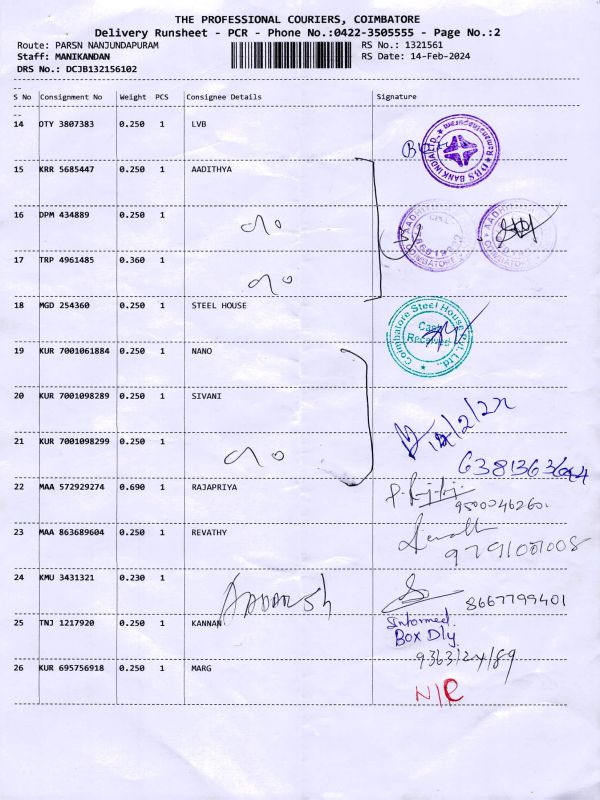 THE PROFESSIONAL COURIERS, COIMBATORE
Delivery Runsheet - PCR - Phone No.:0422-3505555 - Page No.:2
Route: PARSN NANJUNDAPURAM RS No.: 1321561
Staff: MANIKANDAN RS Date: 14-Feb-2024
DRS No.: DCJB132156102
--
S No Consignment No Weight PCS Consignee Details Signature
--
14 OTY 3807383 0.250 1 LVB
DBS BANK INDIA LTD. ★ Ramanathapuram ★
15 KRR 5685447 0.250 1 AADITHYA
16 DPM 434889 0.250 1
COIMBATORE
17 TRP 4961485 0.360 1
18 MGD 254360 0.250 1 STEEL HOUSE
Coimbatore Steel House Pvt. Ltd., ★
Cash
Received
19 KUR 7001061884 0.250 1 NANO
20 KUR 7001098289 0.250 1 SIVANI
21 KUR 7001098299 0.250 1
22 MAA 572929274 0.690 1 RAJAPRIYA
9500046260
23 MAA 863689604 0.250 1 REVATHY
24 KMU 3431321 0.230 1
AADARSH
8667799401
25 TNJ 1217920 0.250 1 KANNAN
Informed.
Box Dly.
9363124189
26 KUR 695756918 0.250 1 MARG
N/C